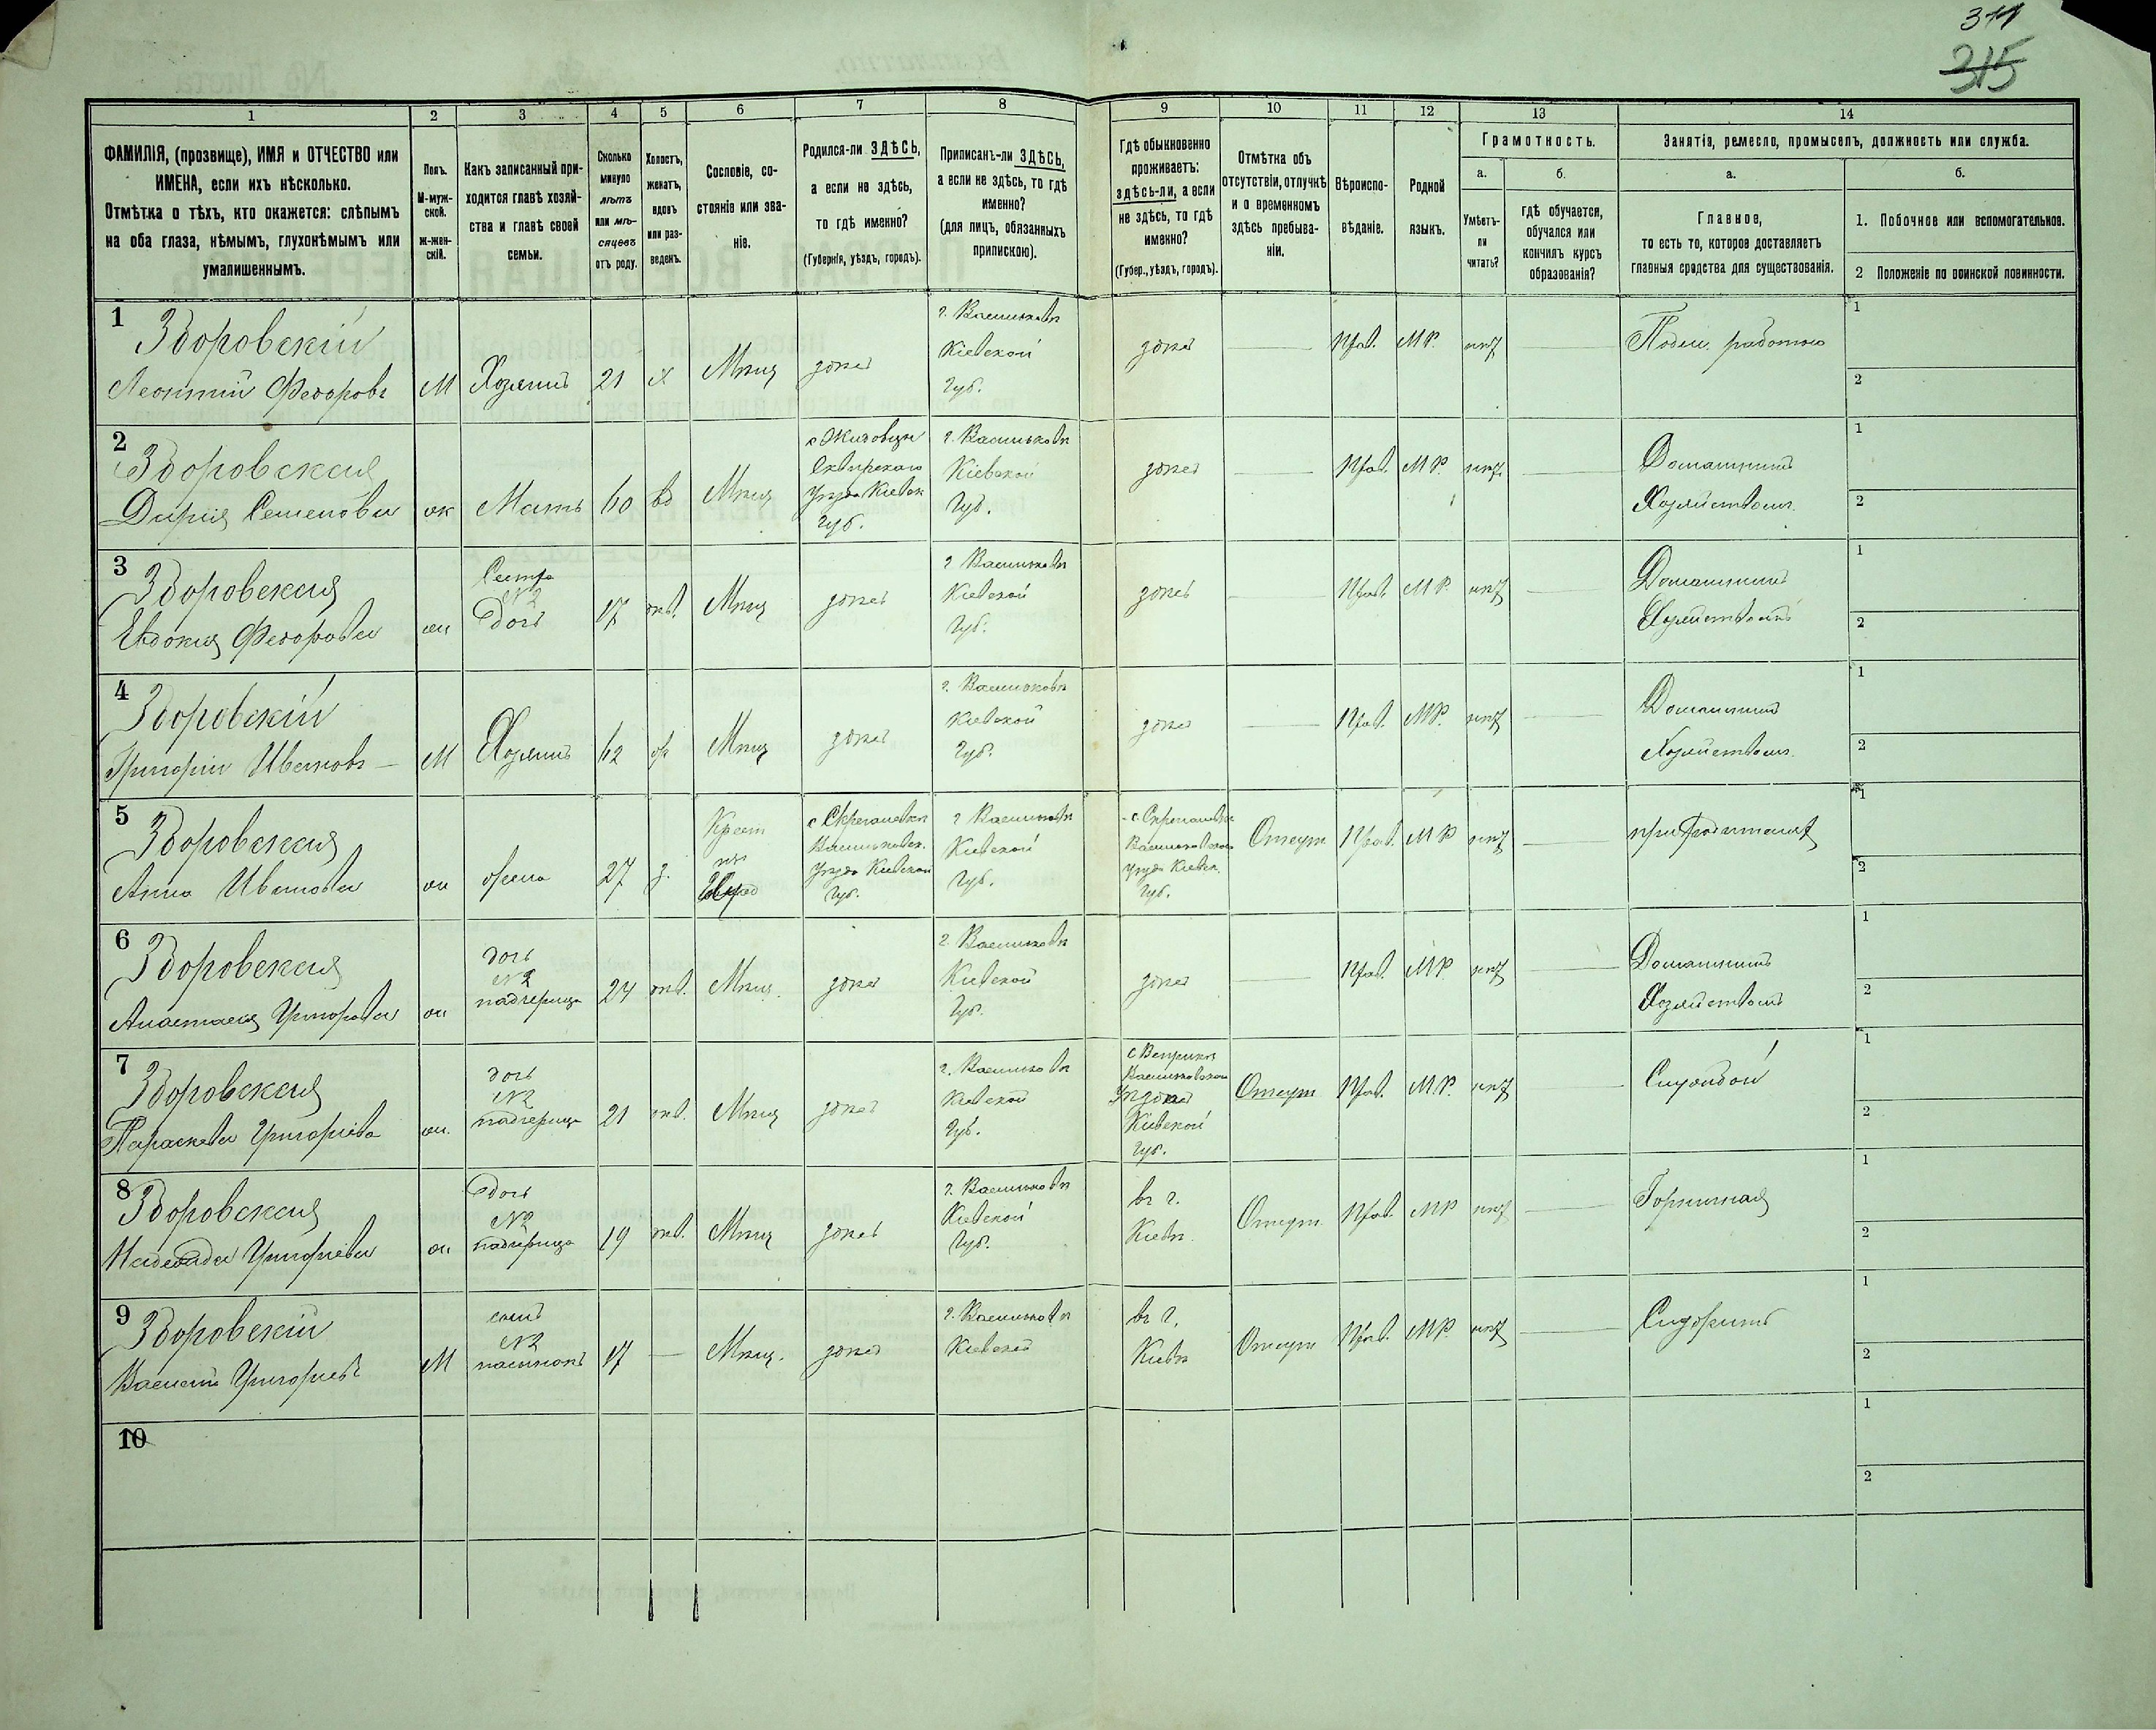 311
315
1 2 3 4 5 6 7 8 9 10 11 12 13 14
ФАМИЛІЯ, (прозвище), ИМЯ и ОТЧЕСТВО или
ИМЕНА, если ихъ нѣсколько.
Отмѣтка о тѣхъ, кто окажется: слѣпымъ
на оба глаза, нѣмымъ, глухонѣмымъ или
умалишеннымъ.
Полъ.
М-муж-
ской.
ж-жен-
скій.
Какъ записанный при-
ходится главѣ хозяй-
ства и главѣ своей
семьи.
Сколько
минуло
лѣтъ
или мѣ-
сяцевъ
отъ роду.
Холостъ,
женатъ,
вдовъ
или раз-
веденъ.
Сословіе, со-
стояніе или зва-
ніе.
Родился-ли ЗДѢСЬ,
а если не здѣсь,
то гдѣ именно?
(Губернія, уѣздъ, городъ).
Приписанъ-ли ЗДѢСЬ,
а если не здѣсь, то гдѣ
именно?
(для лицъ, обязанныхъ
припискою).
Гдѣ обыкновенно
проживаетъ:
здѣсь-ли, а если
не здѣсь, то гдѣ
именно?
(Губер., уѣздъ, городъ).
Отмѣтка объ
отсутствіи, отлучкѣ
и о временномъ
здѣсь пребыва-
ніи.
Вѣроиспо-
вѣданіе.
Родной
языкъ.
Грамотность.
а.
Умѣетъ-
ли
читать?
б.
гдѣ обучается,
обучался или
кончилъ курсъ
образованія?
Занятія, ремесло, промыселъ, должность или служба.
а.
Главное,
то есть то, которое доставляетъ
главныя средства для существованія.
б.
1. Побочное или вспомогательное.
2 Положеніе по воинской повинности.
1
Здоровскій
Леонтій Федоровъ
М
Хозяинъ
21
х
Мѣщ
здѣсь
г. Васильковъ
Кіевской
Губ.
здѣсь
Прав.
МР.
нѣтъ
работою
1
2
2
Здоровская
Дарія Семенова
ж
Мать
60
вд
Мѣщ
Сквирского
Уѣзда Кіевск
Губ.
г. Васильковъ
Кіевской
Губ.
здѣсь
Прав.
МР.
нѣтъ
Домашнимъ
Хозяйствомъ.
1
2
3
Здоровская
Евдокія Федорова
ж
Сестра
№2
дочь
17
дѣв.
Мѣщ
здѣсь
г Васильковъ
Кіевской
Губ.
здѣсь
Прав.
МР.
нѣтъ
Домашнимъ
Хозяйствомъ
1
2
4
Здоровскій
Григорій Ивановъ
М
Хозяинъ
62
ж
Мѣщ
здѣсь
г. Васильковъ
Кіевской
Губ.
здѣсь
Прав.
МР.
нѣтъ
Домашнимъ
Хозяйствомъ.
1
2
5
Здоровская
Анна Иванова
ж
жена
27
з.
Крест
Васильковск.
Уѣзда Кіевской
Губ.
г Васильковъ
Кіевской
Губ.
Васильковского
Уѣзда Кіевск.
Губ.
Отсут
Прав.
МР
нѣтъ
1
2
6
Здоровская
Анастасія Григорьева
ж
дочь
№2
падчерица
24
дѣв.
Мѣщ.
здѣсь
г. Васильковъ
Кіевской
Губ.
здѣсь
Прав.
МР.
нѣтъ
Домашнимъ
Хозяйствомъ
1
2
7
Здоровская
Параскева Григорьева
ж.
дочь
№2
падчерица
21
дѣв.
Мѣщ
здѣсь
г. Васильковъ
Кіевской
Губ.
с Веприкъ
Васильковского
Уѣзда
Кіевской
Губ.
Отсут
Прав.
МР.
нѣтъ
1
2
8
Здоровская
Надежда Григорьева
ж
дочь
№2
падчерица
19
дѣв.
Мѣщ
здѣсь
г. Васильковъ
Кіевской
Губ.
въ г.
Кіевѣ.
Отсут.
Прав.
МР
нѣтъ
Горничная
1
2
9
Здоровскій
Василій Григорьевъ
М
сынъ
№2
пасынокъ
17
Мѣщ.
здѣсь
г. Васильковъ
Кіевской
въ г.
Кіевѣ
Отсут
Прав.
МР.
нѣтъ
1
2
10
1
2